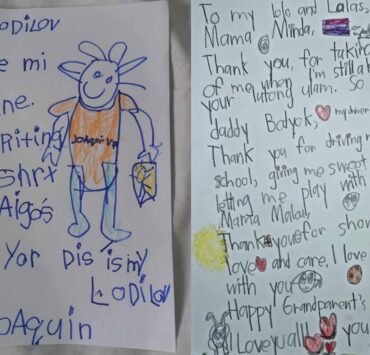 LODILOV
e mi
ne.
RiTing
ShRX
Aigos
JOAQUIN
Yor Dis is my
LODILOV
OAQuin
To my lolo and Lalas,
Mama Minda,
Thank you, for taking
of me when I'm still a b
your lutong ulam. So
daddy Bodyok, my driver
Thank you for driving m
school, giving me sweet
letting me play with
Mamta Malou,
Thank you for show
love and care. I love
with you
Happy Grandparent's
I Love you all! you